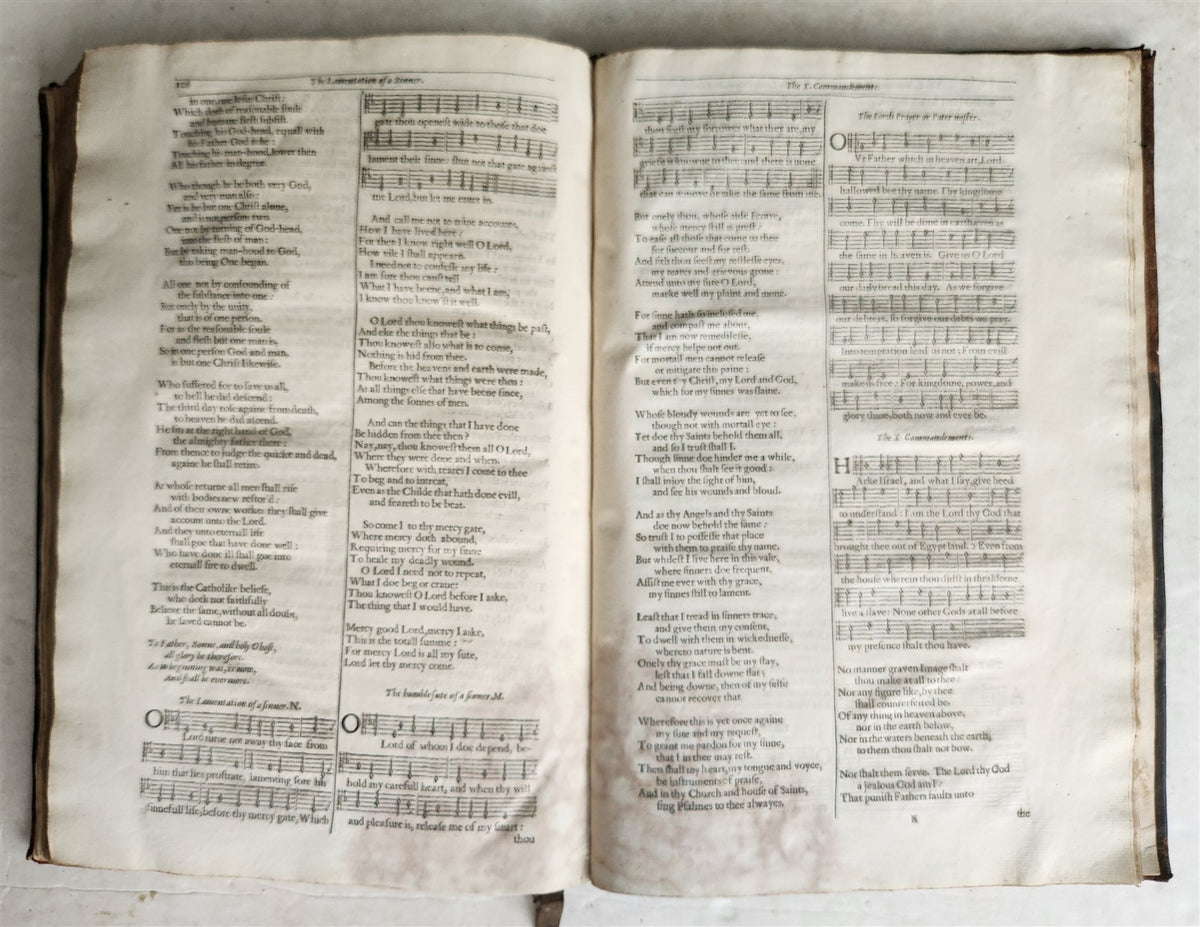 The Lamentation of a Sinner.
in one, one Jesu Christ:
Which doth of reasonable soule
and humane flesh subsist.
Touching his God-head, equall with
his Father God is he:
Touching his man-hood, lower then
his father in degree.
Who though he be both very God,
and very man also:
Yet is he but one Christ alone,
and is not person two.
One not by turning of God-head,
into the flesh of man:
But by taking man-hood to God,
this being One began.
All one not by confounding of
the substance into one:
But onely by the unity,
that is of one person.
For as the reasonable soule
and flesh but one man is,
So in one person God and man.
is but one Christ likewise.
Who suffered for to save us all,
to hell he did descend:
The third day rose againe from death,
to heaven he did ascend.
He sits at the right hand of God,
the almighty father there:
From thence to judge the quicke and dead,
againe he shall retire.
At whose returne all men shall rise
with bodies new restor'd:
And of their owne workes they shall give
account unto the Lord.
And they unto eternall life
shall goe that have done well:
Who have done ill shall goe into
eternall fire to dwell.
This is the Catholike beliefe,
who doth not faithfully
Believe the same, without all doubt,
he saved cannot be.
To Father, Sonne, and holy Ghost,
all glory be therefore.
As in beginning was, is now,
And shall be evermore.
The Lamentation of a sinner. N.
O Lord turne not away thy face from
him that lies prostrate, lamenting sore his
sinnefull life, before thy mercy gate, Which
gate thou openest wide to those that doe
lament their sinne: shut not that gate against
me Lord, but let me enter in.
And call me not to mine accounts,
How I have lived here:
For then I know right well O Lord,
How vile I shall appeare.
I need not to confesse my life:
I am sure thou canst tell
What I have beene, and what I am,
I know thou knowst it well.
O Lord thou knowest what things be past,
And eke the things that be:
Thou knowest also what is to come,
Nothing is hid from thee.
Before the heavens and earth were made,
Thou knowest what things were then:
As all things else that have beene since,
Among the sonnes of men.
And can the things that I have done
Be hidden from thee then?
Nay, nay, thou knowest them all O Lord,
Where they were done and when.
Wherefore with teares I come to thee
To beg and to intreat,
Even as the Childe that hath done evill,
and feareth to be beat.
So come I to thy mercy gate,
Where mercy doth abound,
Requiring mercy for my sinne
To heale my deadly wound.
O Lord I need not to repeat,
What I doe beg or crave:
Thou knowest O Lord before I aske,
The thing that I would have.
Mercy good Lord, mercy I aske,
This is the totall summe:
For mercy Lord is all my sute,
Lord let thy mercy come.
The humble sute of a sinner. M.
O Lord of whom I doe depend, be-
hold my carefull heart, and when thy will
and pleasure is, release me of my smart:
thou
The X. Commandements.
thou seest my sorrowes what they are, my
griefe is knowne to thee: and there is none
that can remove or take the same from me.
But onely thou, whose aide I crave,
whose mercy still is prest:
To ease all those that come to thee
for succour and for rest.
And sith thou seest my restlesse eyes,
my teares and grievous grone:
Attend unto my sure O Lord,
marke well my plaint and mone.
For sinne hath so inclosed me,
and compast me about,
That I am now remedilesse,
if mercy helpe not out.
For mortall men cannot release
or mitigate this paine:
But even thy Christ, my Lord and God,
which for my sinnes was slaine.
Whose bloudy wounds are yet to see,
though not with mortall eye:
Yet doe thy Saints behold them all,
and so I trust shall I.
Though sinne doe hinder me a while,
when thou shalt see it good:
I shall injoy the sight of him,
and see his wounds and bloud.
And as thy Angels and thy Saints
doe now behold the same:
So trust I to possesse that place
with them to praise thy name,
But whilest I live here in this vale,
where sinners doe frequent,
Assist me ever with thy grace,
my sinnes still to lament.
Least that I tread in sinners trace,
and give them my consent,
To dwell with them in wickednesse,
whereto nature is bent.
Onely thy grace must be my stay,
lest that I fall downe flat:
And being downe, then of my selfe
cannot recover that
Wherefore this is yet once againe
my sute and my request,
To grant me pardon for my sinne,
that I in thee may rest.
Then shall my heart, my tongue and voyce,
be instruments of praise,
And in thy Church and house of Saints,
sing Psalmes to thee alwayes.
The Lords Prayer or Pater noster.
OVr Father which in heaven art, Lord.
hallowed bee thy name. Thy kingdome
come. Thy will be done in earth, even as
the same in heaven is. Give us O Lord
our daily bread this day. As we forgive
our debters, so forgive our debts we pray.
Into temptation lead us not: From evill
make us free: For kingdome, power, and
glory thine, both now and ever be.
The X. Commandements.
HArke Israel, and what I say, give heed
to understand: I am the Lord thy God that
brought thee out of Egypt land. 2 Even from
the house wherein thou didst in thraldome
live a slave: None other Gods at all before
my presence shalt thou have.
No manner graven Image shalt
thou make at all to thee:
Nor any figure like, by thee
shall counterfeited be.
Of any thing in heaven above,
nor in the earth below,
Nor in the waters beneath the earth,
to them thou shalt not bow.
Nor shalt them serve. The Lord thy God
a jealous God am I:
That punish Fathers faults unto
the